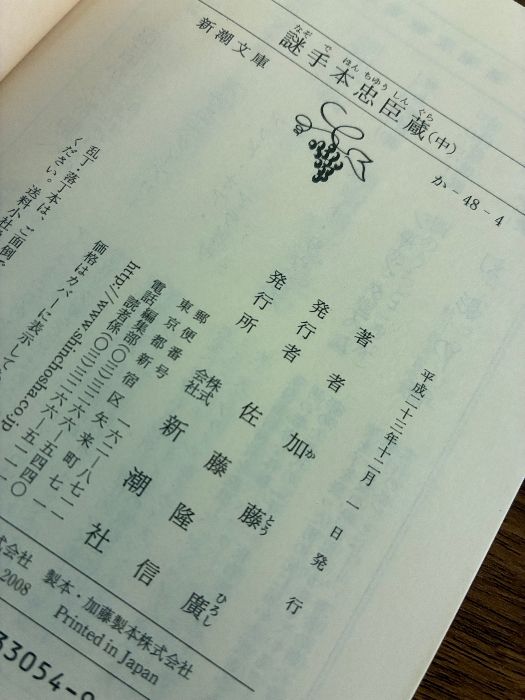 謎手本忠臣蔵(中)
なぞ で ほん ちゆう しん ぐら
新潮文庫
か-48-4
平成二十三年十二月一日発行
著者 加藤廣
か とう ひろし
発行者 佐藤隆信
発行所 株式会社 新潮社
郵便番号 一六二―八七一一
東京都新宿区矢来町七一
電話 編集部(〇三)三二六六―五四四〇
読者係(〇三)三二六六―五一一一
http://www.shinchosha.co.jp
価格はカバーに表示して
乱丁・落丁本は、ご面倒で
ください。送料小社
式会社 製本・加藤製本株式会社
2008 Printed in Japan
33054-9